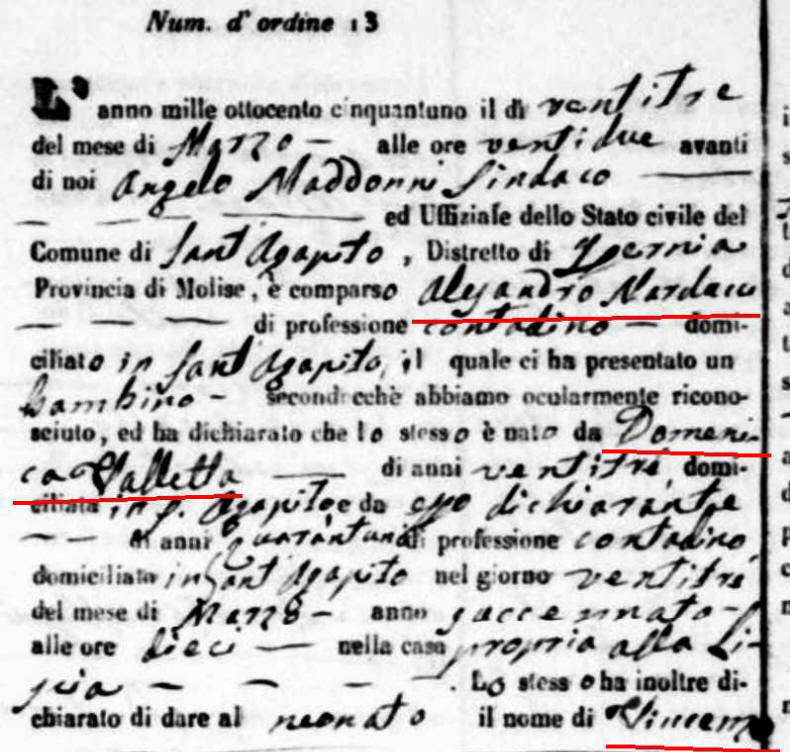 Num. d'ordine 13
L'anno mille ottocento cinquantuno il dì ventitre
del mese di Marzo — alle ore ventidue avanti
di noi Angelo Maddonni Sindaco —
— — — ed Uffiziale dello Stato civile del
Comune di Sant Agapito, Distretto di Ysernia
Provincia di Molise, è comparso Alejandro Nardacci
— — — — di professione contadino — domi-
ciliato in Sant Agapito, il quale ci ha presentato un
bambino - secondecchè abbiamo ocularmente ricono-
sciuto, ed ha dichiarato che lo stesso è nato da Domeni-
ca Valletta — di anni ventitrè, domi-
ciliata in S. Agapito e da esso dichiarante
— — di anni quarantuno di professione contadino,
domiciliato in Sant Agapito nel giorno ventitrè
del mese di Marzo — anno accennato -
alle ore dieci — nella casa propria alla
— — — — . Lo stesso ha inoltre di-
chiarato di dare al neonato il nome di